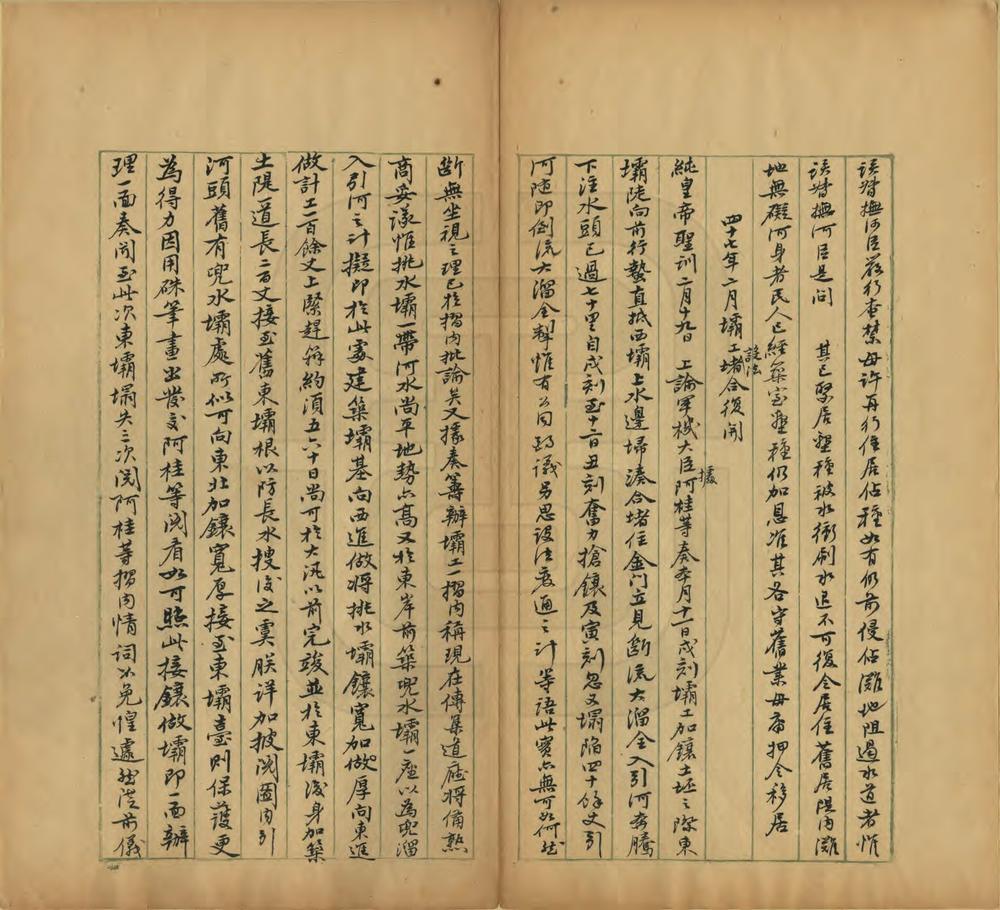 該督撫河臣嚴行查禁毋許再行住居佔種如有仍前侵佔灘地阻遏水道者惟
該督撫河臣是問　其已聚居墾種被水衝刷水退不可復令居住舊居隄內灘
地無礙河身者民人已經築室墾種仍加恩准其各守舊業毋庸押令移居
四十七年二月壩工堵合復開設法
純皇帝聖訓二月十九日　上諭軍機大臣據阿桂等奏本月十一日戌刻壩工加鑲土坯之際東
壩陡向前行蟄直抵西壩上水邊埽湊合堵住金門立見斷流大溜全入引河奔騰
下注水頭已過七十里自戌刻至十二日丑刻奮力搶鑲及寅刻忽又塌陷四十餘丈引
河隨即倒流大溜全掣惟有公同酌議另思設法變通之計等語此實亦無可如何然
斷無坐視之理已於摺內批諭矣又據奏籌辦壩工一摺內稱現在傳集道廳將備熟
商妥議惟挑水壩一帶河水尚平地勢亦高又於東岸前築兜水壩一座以為兜溜
入引河之計擬即於此處建築壩基向西進做將挑水壩鑲寬加做厚向東進
做計工二百餘丈上緊趕辦約須五六十日尚可於大汛以前完竣並於東壩後身加築
土隄一道長二百丈接至舊東壩根以防長水搜後之虞朕詳加披閱圖內引
河頭舊有兜水壩處所似可向東北加鑲寬厚接至東壩臺則保護更
為得力因用硃筆畫出發交阿桂等閱看如可照此接鑲做壩即一面辦
理一面奏聞至此次東壩塌失三次閱阿桂等摺內情詞不免惶遽然從前儀